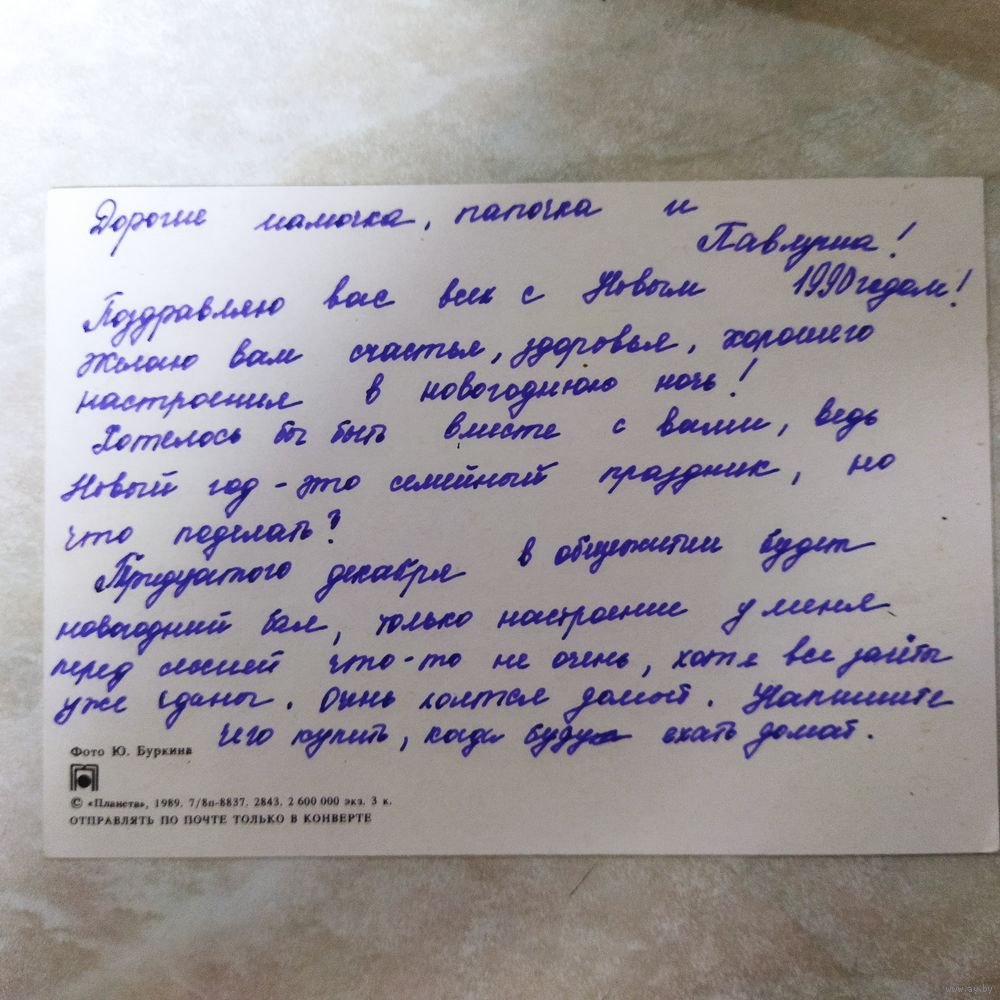 Дорогие мамочка, папочка и
Павлуша!
Поздравляю вас всех с Новым 1990 годом!
Желаю вам счастья, здоровья, хорошего
настроения в новогоднюю ночь!
Хотелось бы быть вместе с вами, ведь
Новый год - это семейный праздник, но
что поделать?
Тридцатого декабря в общежитии будет
новогодний бал, только настроение у меня
перед сессией что-то не очень, хотя все зачёты
уже сданы. Очень хочется домой. Напишите
чего купить, когда буду ехать домой.
Фото Ю. Буркина
© «Планета», 1989. 7/8п-8837. 2843. 2 600 000 экз. 3 к.
ОТПРАВЛЯТЬ ПО ПОЧТЕ ТОЛЬКО В КОНВЕРТЕ
www.ay.by